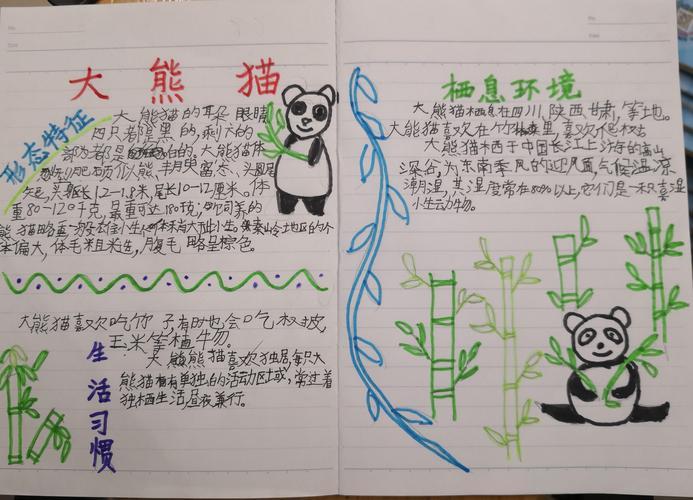 大熊猫
形态特征
大熊猫的耳朵 眼睛
四只都是黑的,剩下的
部分都是白的,大熊猫体
型肥硕似熊、丰腴富态、头圆尾
短,头躯长1.2-1.8米,尾长10-12厘米。体
重80-120千克,最重可达180千克,
体偏大,体毛粗 腹毛略呈棕色。
大熊猫喜欢吃竹子,有时也会吃
玉米等植物。
生活习惯
大熊猫喜欢独居,每只大
熊猫有单独的活动区域,常过着
独栖生活,昼夜兼行。
栖息环境
大熊猫栖息在四川、陕西、甘肃,等地。
大熊猫喜欢在竹 里,喜欢
大熊猫栖西于中国长江上游的高山
深谷,为东南季风的迎风面,气候温凉
潮湿,其湿度常在80%以上,它们是一种喜湿
小生动物。